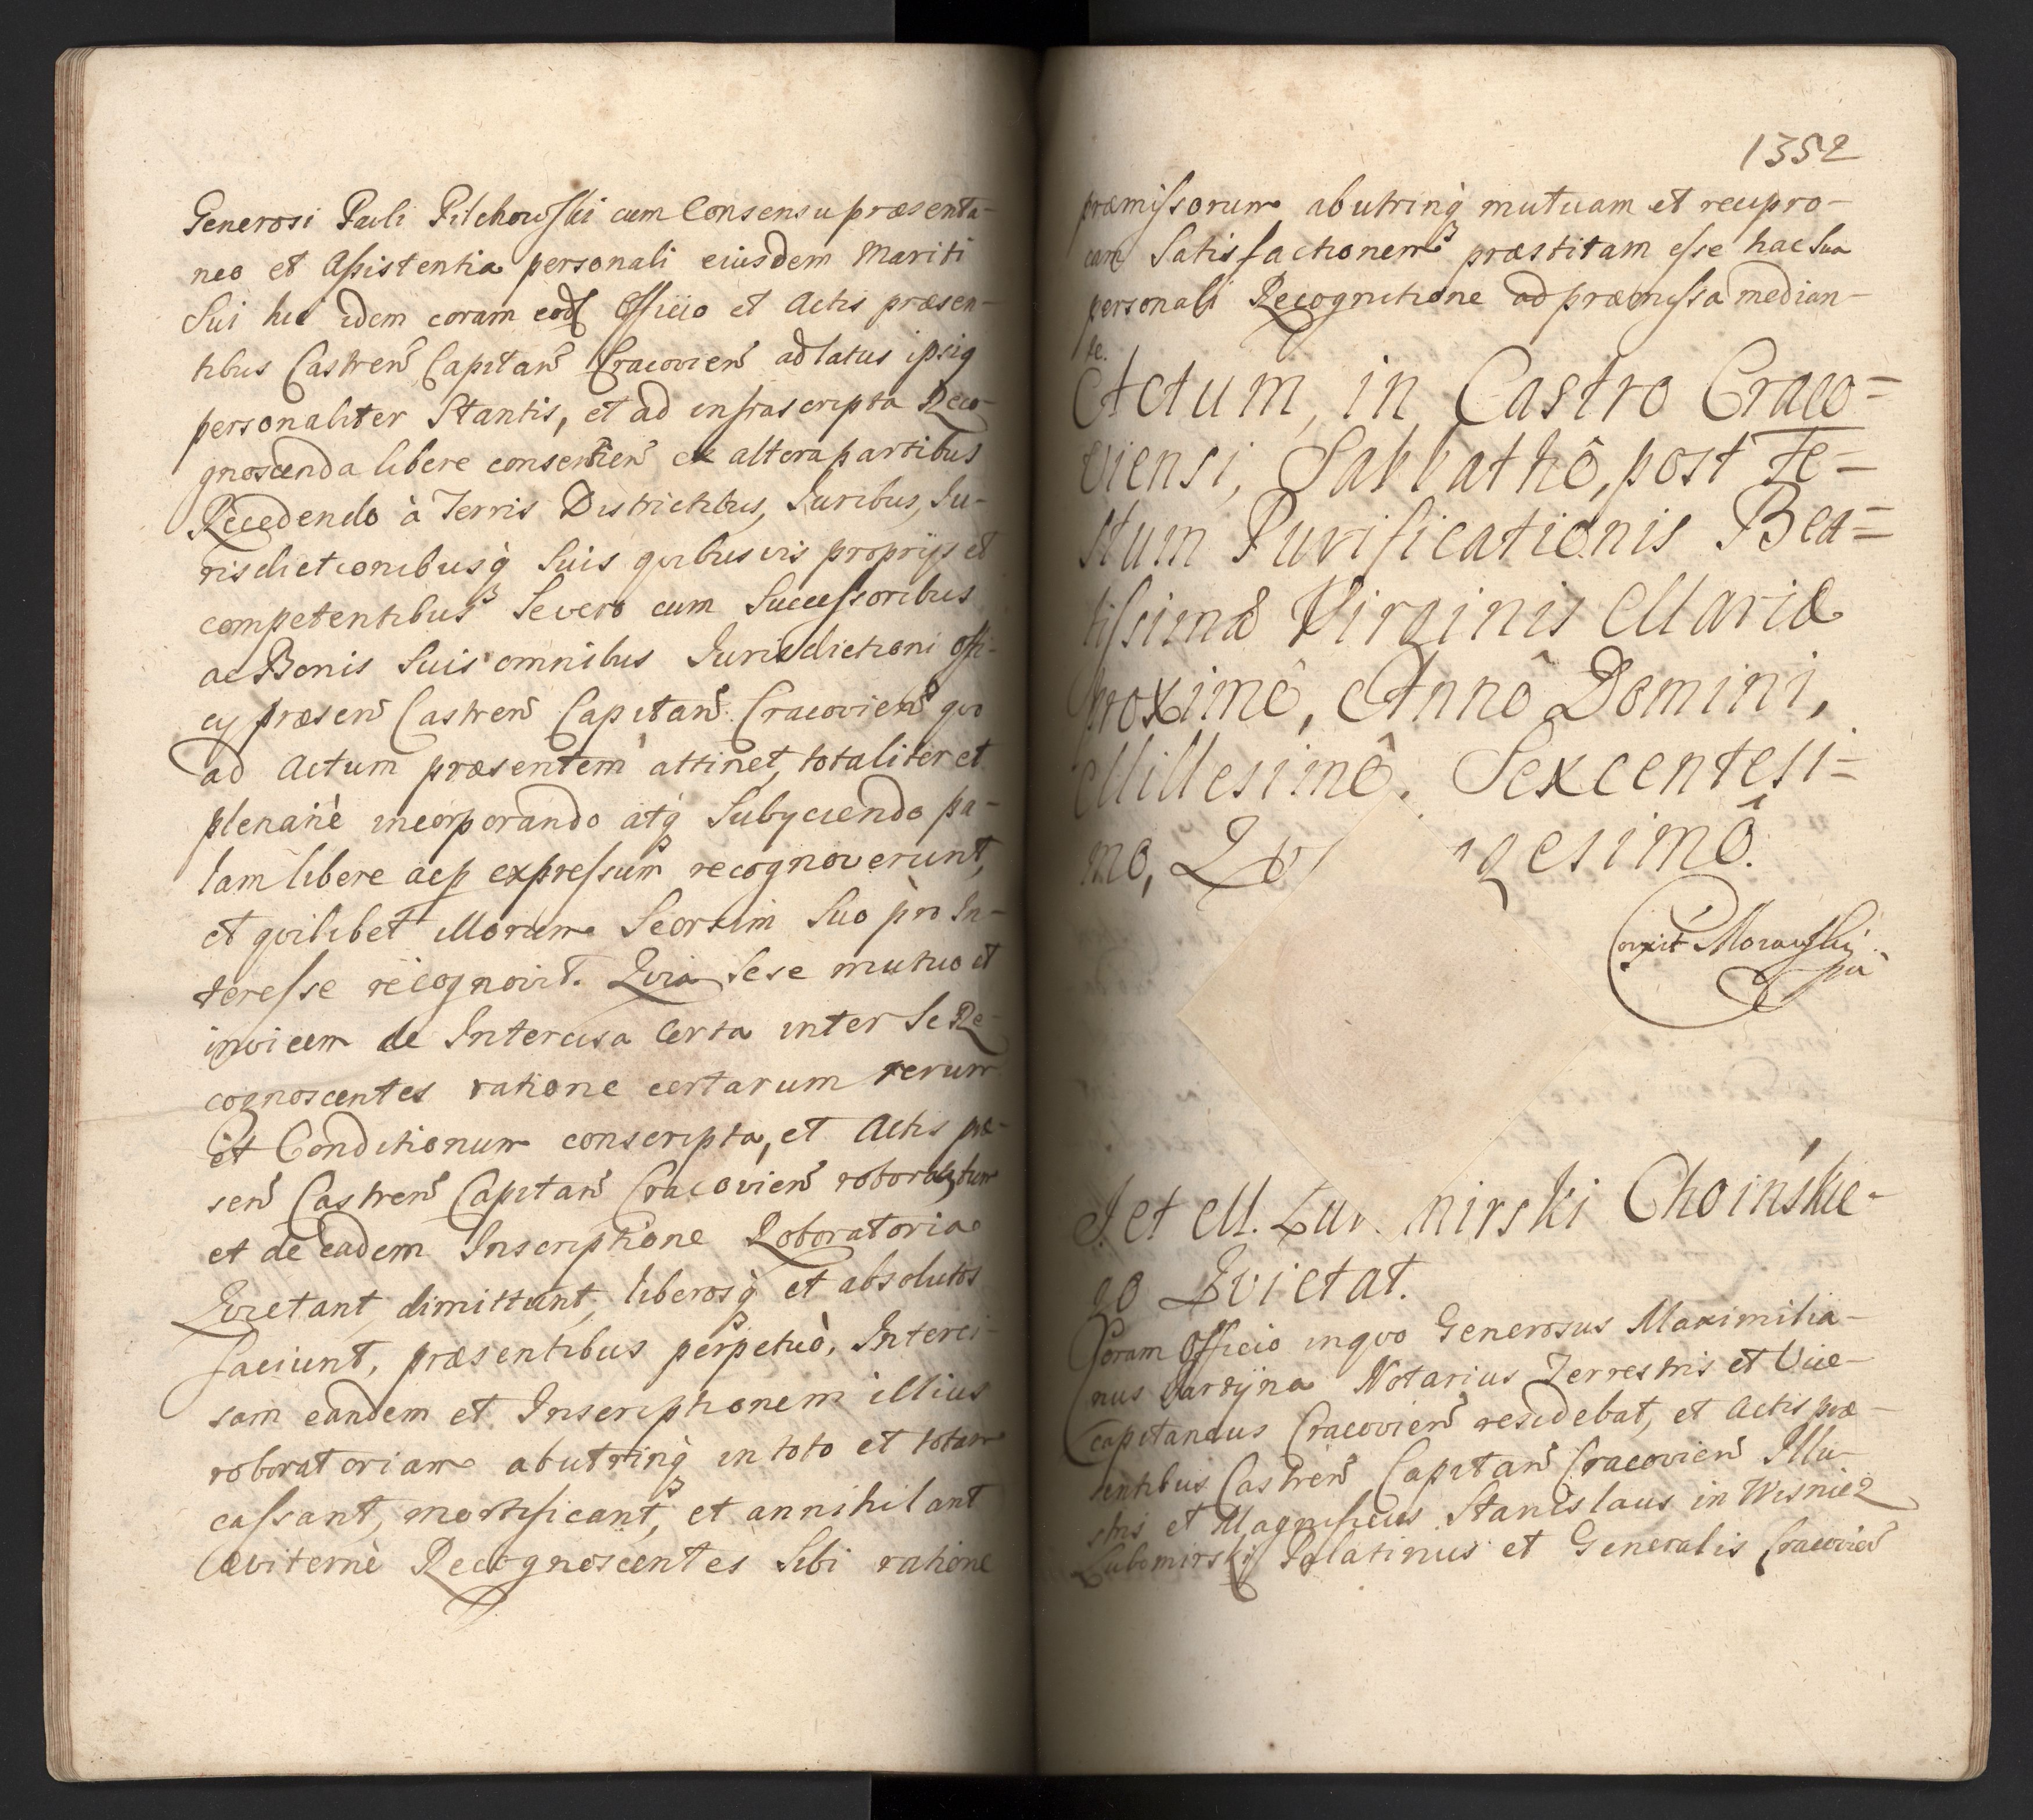 Generosi Pauli Pilchowski cum Consensu præsenta-
neo et Assistentia personali eiusdem Mariti
Sui hic idem coram eod Officio et Actis præsen-
tibus Castren Capitan Cracovien ad latus ipsiq
personaliter Stantis, et ad infrascripta Reco-
gnoscenda libere consentien ex altera partibus
Recedendo à Terris Districtibus, Iuribus, Iu-
risdictionibusq Suis quibusvis proprijs et
competentibus Severo cum Successoribus
ac Bonis Suis omnibus Iurisdictioni Offi-
cij præsen Castren Capitan Cracovien quo
ad Actum præsentem attinet, totaliter et
plenariè incorporando atq Subijciendo pa-
lam libere acp expressum recognoverunt,
et quilibet illorum Seorsim Suo pro In-
teresse recognovit. Quia Sese mutuo et
invicem de Intercisa Certa inter Se Re-
cognoscentes ratione certarum rerum
et Conditionum conscripta, et Actis præ-
sen Castren Capitan Cracovien
et de eadem Inscriptione Roboratoria
Quietant, dimittunt, liberosq et absolutos
faciunt, præsentibus perpetuò, Interci-
sam eandem et Inscriptionem illius
roboratoriam abutrinq in toto et totam
cassant, mortificant, et annihilant
æviternè Recognoscentes Sibi ratione
1352
præmissorum abutrinq mutuam et recipro-
cam Satisfactionem præstitam esse hac Sua
personali Recognitione ad præmissa median-
te.
Actum, in Castro Craco=
viensi, Sabbathô, post Fe=
stum Purificationis Bea=
tissimæ Virginis Mariæ
proximô, Annô Domini,
Millesimô. Sexcentesi=
mo, gesimô.
Corrxit Morawski
I. et M. Lu mirski Choińskie-
go Quietat.
Coram Officio in quo Generosus Maximilia-
nus Notarius Terrestris et Vice-
capitaneus Cracovien residebat, et Actis præ-
sentibus Castren Capitan Cracovien Illu-
stris et Magnificus Stanislaus in Wisnicz
Lubomirski Palatinus et Generalis Cracovien